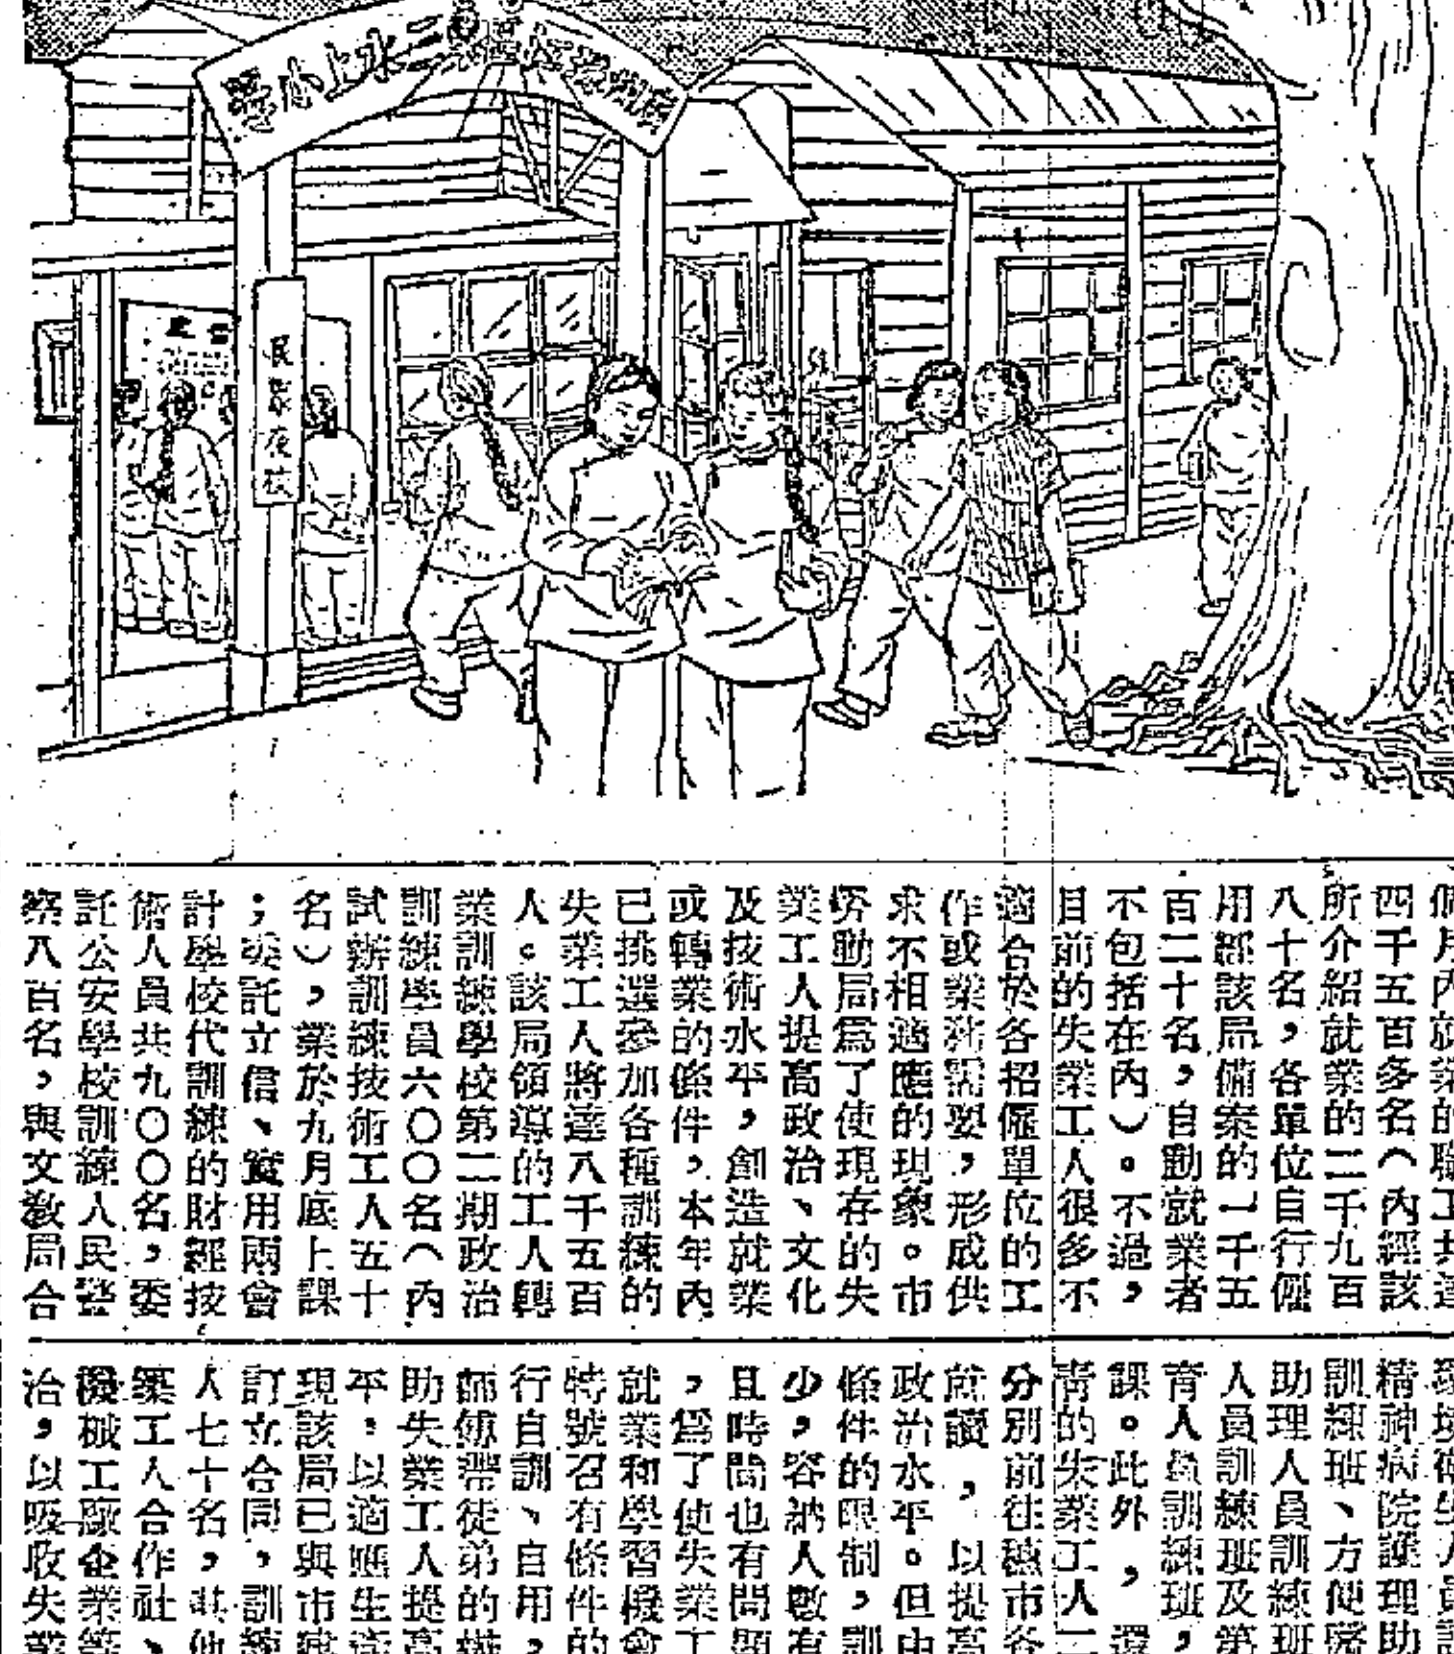 廣州珠江區第二水上小學
民眾夜校
個月內就業的職工共達
四千五百多名（內經該
所介紹就業的二千九百
八十名，各單位自行僱
用經該局備案的一千五
百二十名，自動就業者
不包括在內）。不過，
目前的失業工人很多不
適合於各招僱單位的工
作或業務需要，形成供
求不相適應的現象。市
勞動局爲了使現存的失
業工人提高政治、文化
及技術水平，創造就業
或轉業的條件，本年內
已挑選參加各種訓練的
失業工人將達八千五百
人。該局領導的工人轉
業訓練學校第二期政治
訓練學員六〇〇名（內
試辦訓練技術工人五十
名），業於九月底上課
；委託立信、實用兩會
計學校代訓練的財經技
術人員共九〇〇名，委
託公安學校訓練人民警
察八百名，與文教局合
精神病院護理助
訓練班、方便醫
助理人員訓練班
人員訓練班及第
育人員訓練班，
課。此外，還
靑的失業工人二
分別前往穗市各
就讀，以提高
政治水平。但由
條件的限制，訓
少，容納人數有
且時間也有問題
，爲了使失業工
就業和學習機會
特號召有條件的
行自訓、自用，
師傅帶徒弟的辦
助失業工人提高
平，以適應生產
現該局已與市建
訂立合同，訓練
人七十名，其他
築工人合作社、
機械工廠企業等
治，以吸收失業